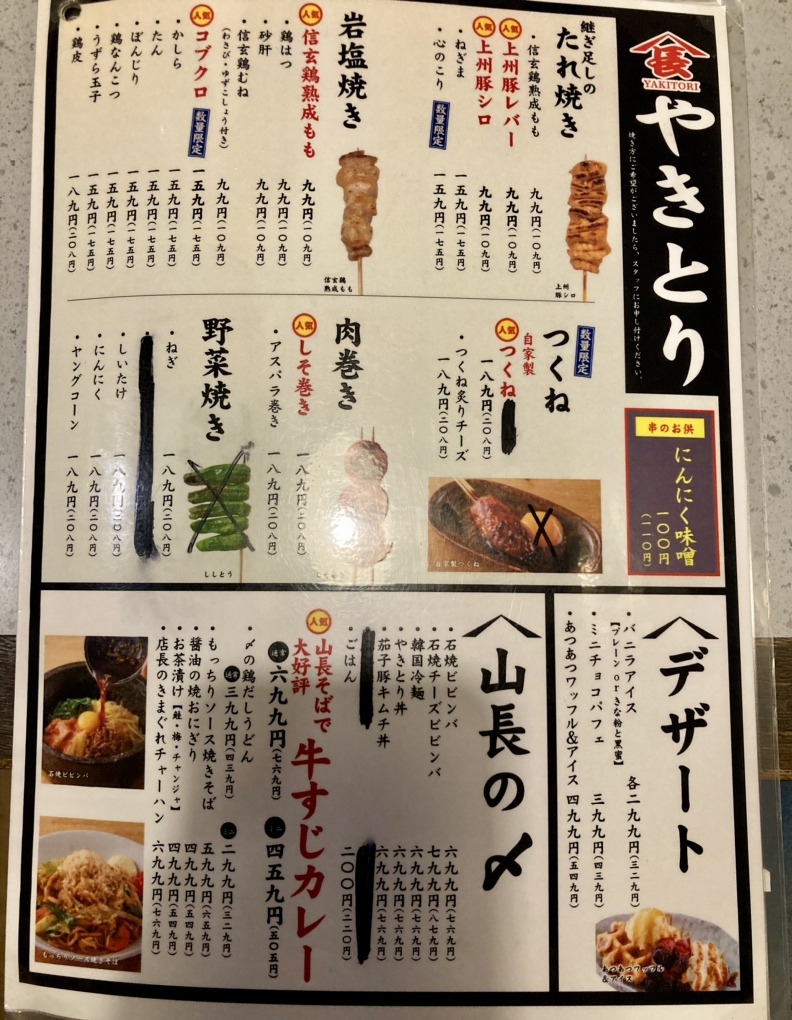 YAKITORI
やきとり
焼き方にご希望がございましたら、スタッフにお申し付けください。
継ぎ足しの
たれ焼き
・信玄鶏熟成もも 九九円(一〇九円)
人気 上州豚レバー 九九円(一〇九円)
人気 上州豚シロ 九九円(一〇九円)
・ねぎま 一五九円(一七五円)
・心のこり 数量限定 一五九円(一七五円)
上州
豚シロ
岩塩焼き
人気 信玄鶏熟成もも 九九円(一〇九円)
・鶏はつ 九九円(一〇九円)
・砂肝 九九円(一〇九円)
・信玄鶏むね
(わさび・ゆずこしょう付き) 九九円(一〇九円)
人気 コブクロ 数量限定 一五九円(一七五円)
・かしら 一五九円(一七五円)
・たん 一五九円(一七五円)
・ぼんじり 一五九円(一七五円)
・鶏なんこつ 一五九円(一七五円)
・うずら玉子 一五九円(一七五円)
・鶏皮 一八九円(二〇八円)
信玄鶏
熟成もも
串のお供
にんにく味噌
一〇〇円
(一一〇円)
数量限定
つくね
自家製
人気 つくね
一八九円(二〇八円)
・つくね炙りチーズ
一八九円(二〇八円)
自家製つくね
肉巻き
人気 しそ巻き 一八九円(二〇八円)
・アスパラ巻き 一八九円(二〇八円)
野菜焼き
・ねぎ 一八九円(二〇八円)
・しいたけ 一八九円(二〇八円)
・にんにく 一八九円(二〇八円)
・ヤングコーン 一八九円(二〇八円)
ししとう
デザート
・バニラアイス
【プレーン orきな粉と黒蜜】 各二九九円(三二九円)
・ミニチョコパフェ 三九九円(四三九円)
・あつあつワッフル&アイス 四九九円(五四九円)
あつあつワッフル
&アイス
山長の〆
・石焼ビビンバ 六九九円(七六九円)
・石焼チーズビビンバ 七九九円(八七九円)
・韓国冷麺 六九九円(七六九円)
・やきとり丼 六九九円(七六九円)
・茄子豚キムチ丼 六九九円(七六九円)
・ごはん 二〇〇円(二二〇円)
人気 山長そばで
大好評
牛すじカレー
通常 六九九円(七六九円)
ミニ 四五九円(五〇五円)
・〆の鶏だしうどん
通常 三九九円(四三九円) ミニ 二九九円(三二九円)
・もっちりソース焼きそば 五九九円(六五九円)
・醤油の焼おにぎり 四九九円(五四九円)
・お茶漬け【鮭・梅・チャンジャ】 四九九円(五四九円)
・店長のきまぐれチャーハン 六九九円(七六九円)
石焼ビビンバ
もっちりソース焼きそば